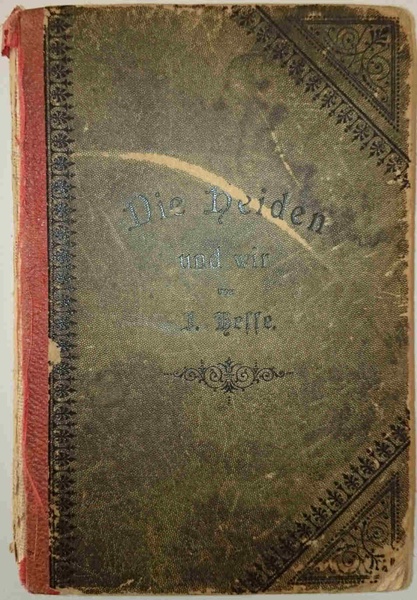 Die Heiden
und wir
von
J. Hesse.